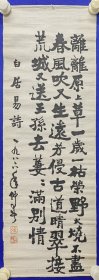 離離原上草一歲一枯榮野火燒不盡
春風吹又生遠芳侵古道晴翠接
荒城又送王孫去萋〻滿別情
白居易詩 一九八